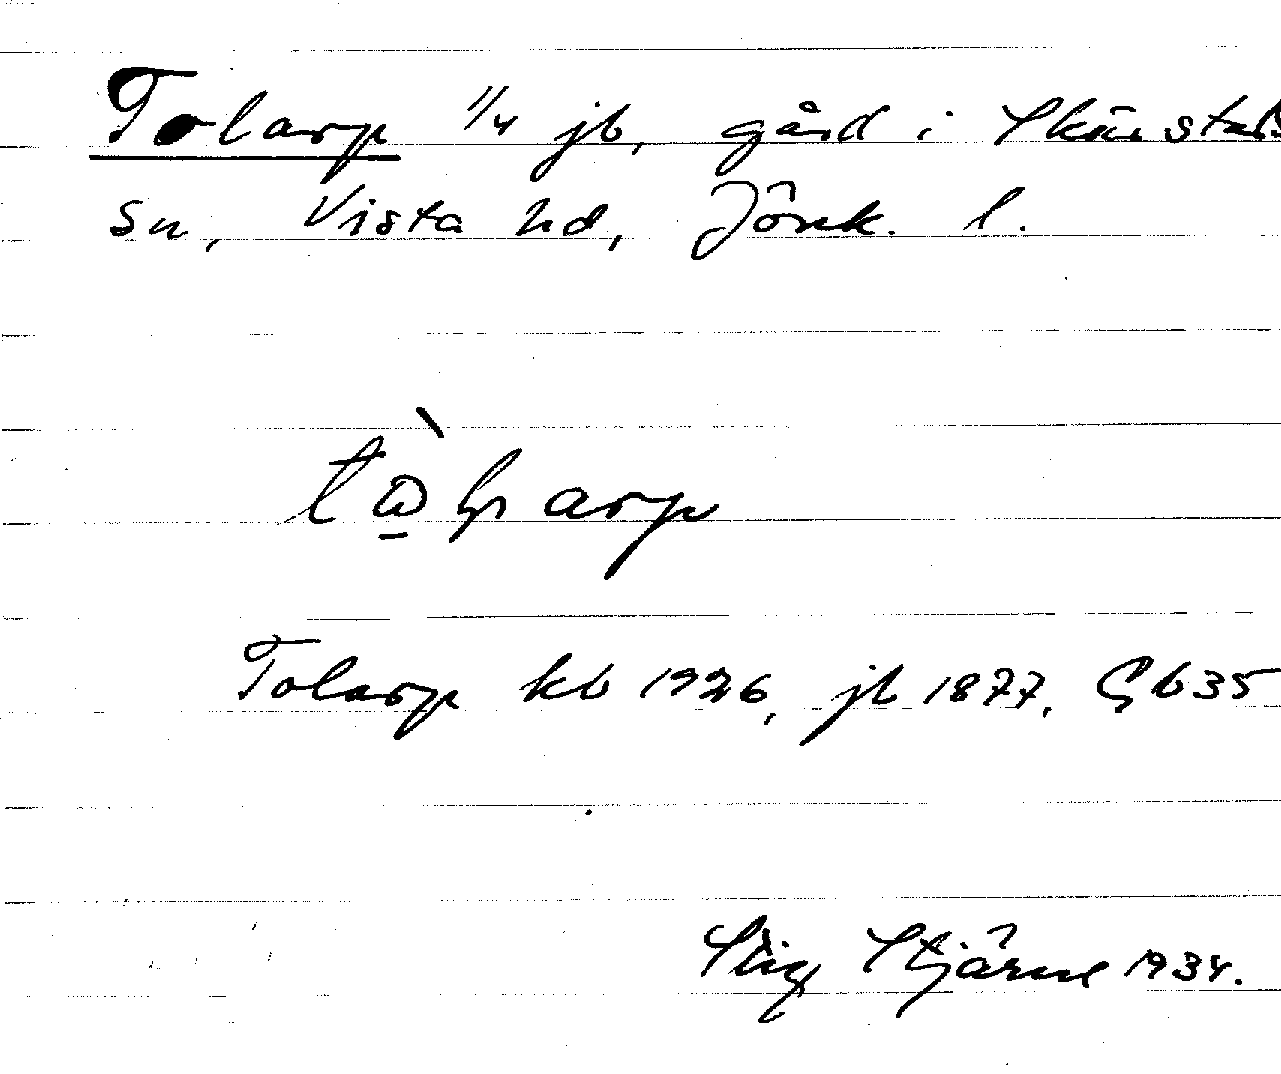 Tolarp 1/4 jb, gård i Skärstad
sn, Vista hd, Jönk. l.
Tolarp kb 1926, jb 1877, Gb 35
Stig Stjärne 1934.